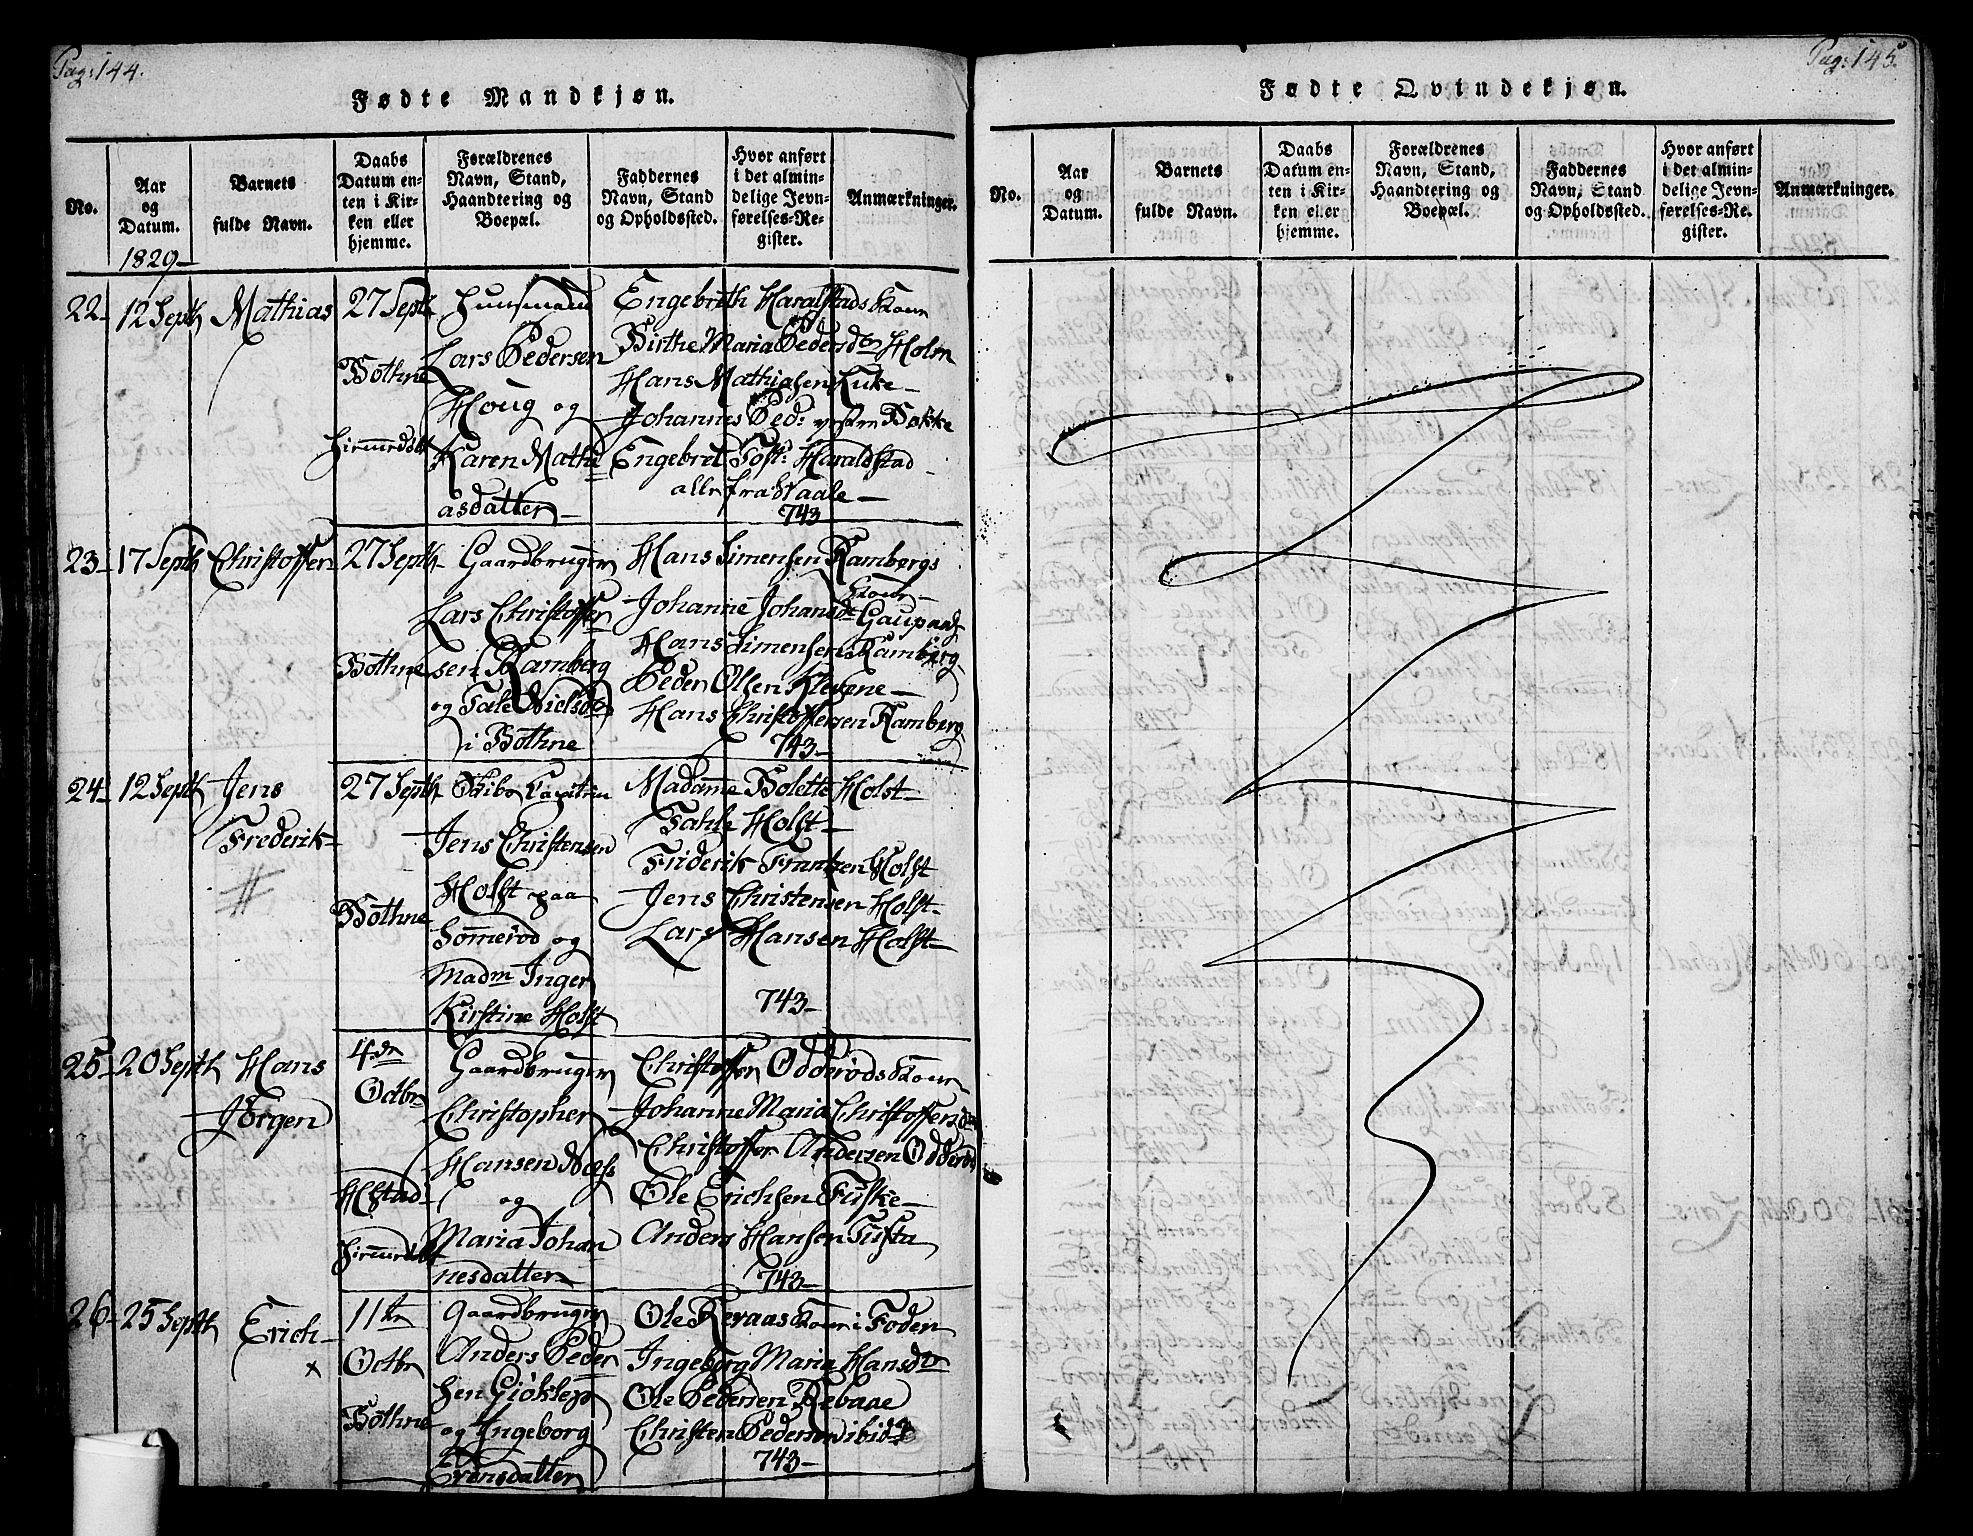 Pag: 144.
Fødte Mandkjøn.
No.
Aar
og
Datum.
Barnets
fulde Navn.
Daabs
Datum en-
ten i Kir-
ken eller
hjemme.
Forældrenes
Navn, Stand,
Haandtering og
Boepæl.
Faddernes
Navn, Stand
og Opholdssted.
Hvor anført
i det almin-
delige Jevn-
førelses-Re-
gister.
Anmærkninger.
1829-
22- 12 Septh Mathias
27 Septh
Bothne
Huusmand
Lars Pedersen
Houg og
Karen Mathi
asdatter-
Engebreth Haralstads Kone
Birthe Maria Pedersdtr Holm
Hans Mathiasen
Johannes Ped: Bakke
Engebret Haraldstad
alle fra Vaale-
743
23- 17 Septh Christoffer
27 Septh
Bothne
Gaardbruger
Lars Christoffer
sen Ramberg
og Tale Nielsdtr
i Bothne
Hans Simensen Rambergs
Kone-
Johanne Johansdtr
Hans Simensen Ramberg
Peder Olsen Klevene-
Hans Christoffersen Ramberg
743-
24- 12 Septh Jens
Frederik-
27 Septh
Bothne
Skibs Capitein
Jens Christensen
Holst paa
Sommerød og
Madm Inger
Kirstine Holst
Madamme Bolette Holst-
Tahle Holst-
Friderik Frantzen Holst
Jens Christensen Holst-
Lars Hansen Holst-
743-
25- 20 Septh Hans
Jørgen
4de
Octbr
Gaardbruger
Christopher
Hansen
og
Maria Johan
nesdatter
Christoffer Odderøds Kone
Johanne Maria Christoffersdtr
Christoffer Andersen Odderød
Ole Erichsen
Anders Hansen
743-
26- 25 Septh Erich-
11te
Octbr
Bothne
Gaardbruger
Anders Peder
sen Giøklep
og Ingeborg
Ole Kone i Foden
Ingeborg Maria Hansdtr
Ole Pedersen
Christen Pedersen ibid:
743-
Pag: 145.
Fødte Qvindekjøn.
No.
Aar
og
Datum.
Barnets
fulde Navn.
Daabs
Datum en-
ten i Kir-
ken eller
hjemme.
Forældrenes
Navn, Stand,
Haandtering og
Boepæl.
Faddernes
Navn, Stand
og Opholdssted.
Hvor anført
i det almin-
delige Jevn-
førelses-Re-
gister.
Anmærkninger.